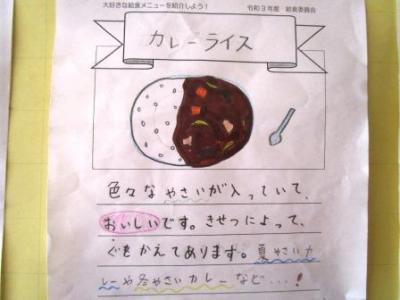 大好きな給食メニューを紹介しよう！ 令和3年度 給食委員会
カレーライス
色々なやさいが入っていて、
おいしいです。きせつによって、
ぐもかえてあります。夏やさいカ
レーや冬やさいカレーなど…！